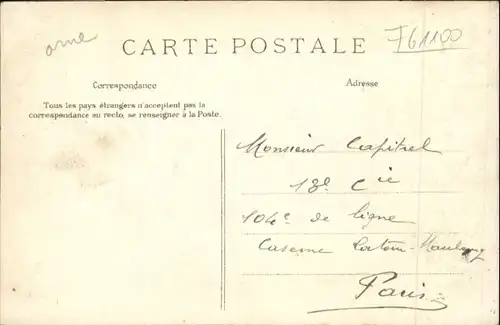 orne
CARTE POSTALE
F61100
Correspondance
Adresse
Tous les pays étrangers n'acceptent pas la
correspondance au recto, se renseigner à la Poste.
Monsieur Capitrel
18e Cie
104e de ligne
Caserne Latour-Maubourg
Paris